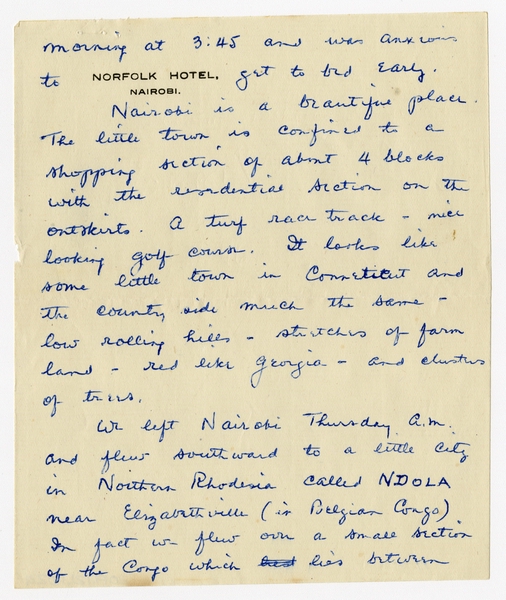 morning at 3:45 and was anxious
to NORFOLK HOTEL, get to bed early.
NAIROBI.
Nairobi is a beautiful place.
The little town is confined to a
shopping section of about 4 blocks
with the residential section on the
outskirts. A turf race track - nice
looking golf course. It looks like
some little town in Conneticut and
the country side much the same -
low rolling hills - stretches of farm
land - red like Georgia - and clusters
of trees.
We left Nairobi Thursday A.M.
and flew southward to a little city
in Northern Rhodesia called NDOLA
near Elizabethville (in Belgian Congo)
In fact we flew over a small section
of the Congo which lies between